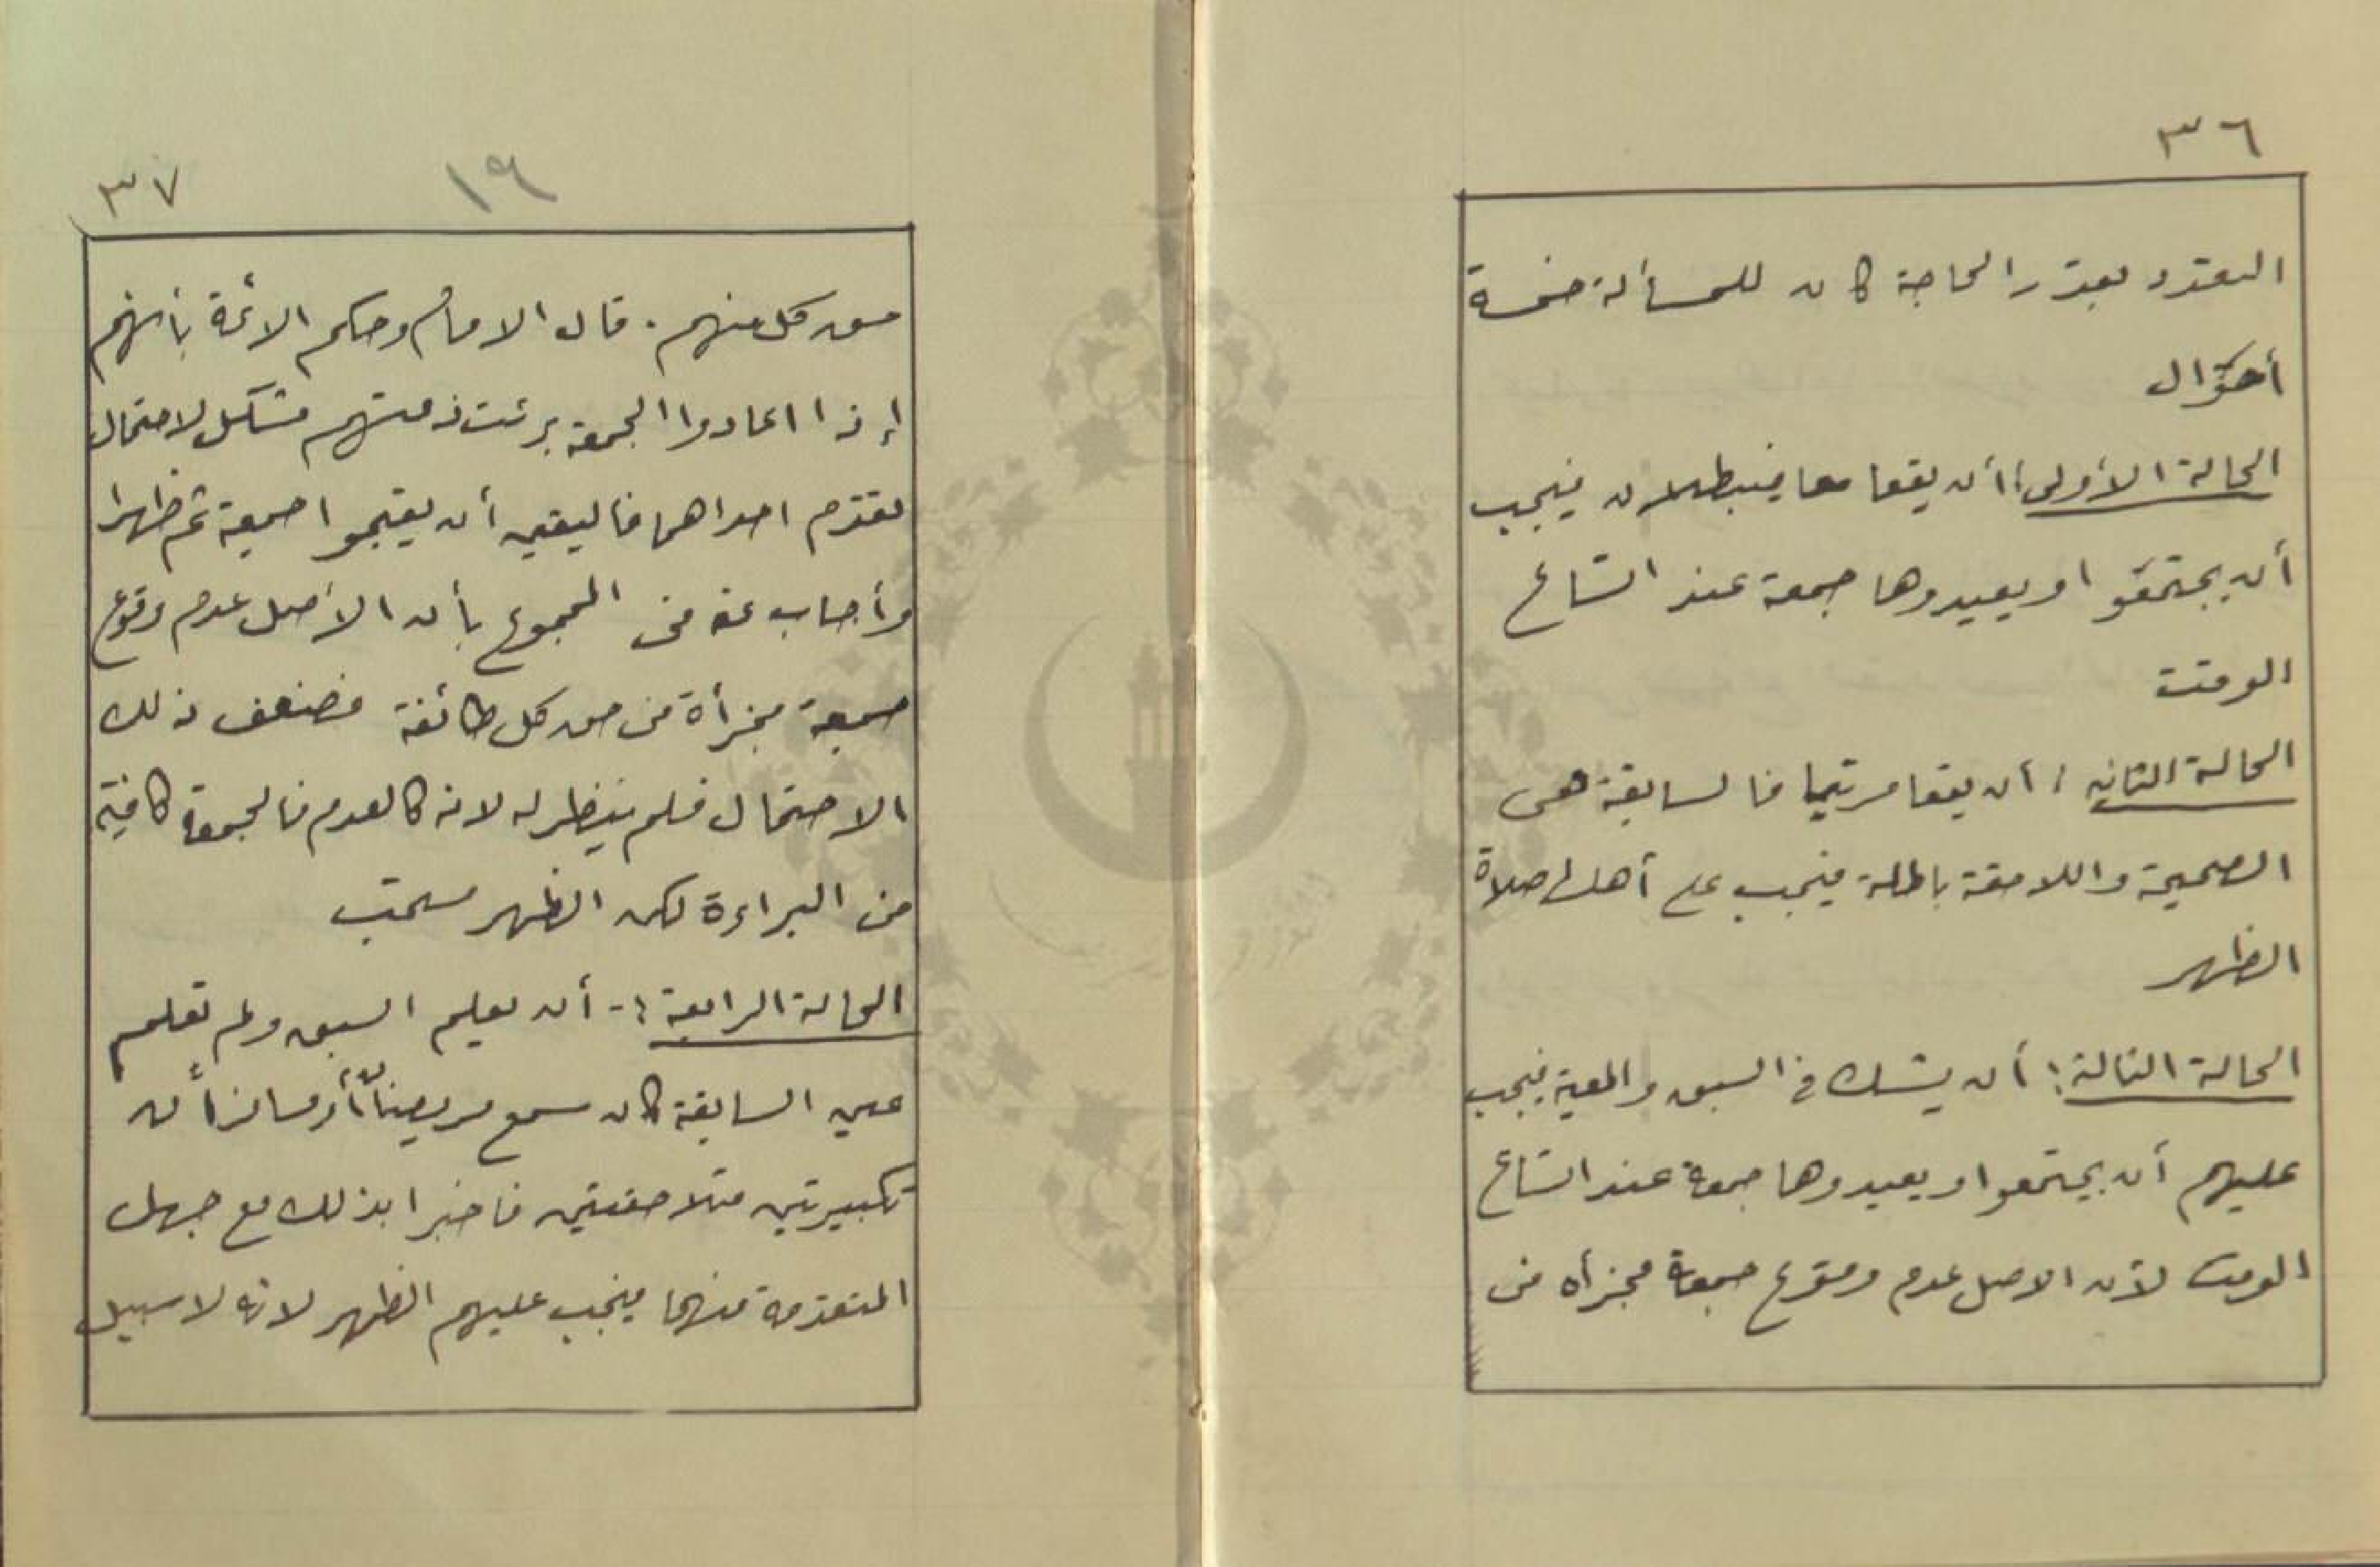 ٣٦
التعدد بعدد الحاجة كان للمسألة خمسة
أحوال
الحالة الأولى: أن يقعا معا فيبطلان فيجب
أن يجتمعوا ويعيدوها جمعة عند اتساع
الوقت
الحالة الثانيه: أن يقعا مرتبا فالسابقة هي
الصحيحة واللاحقة باطلة فيجب على أهلها صلاة
الظهر
الحالة الثالثة: أن يشك في السبق والمعية فيجب
عليهم أن يجتمعوا ويعيدوها جمعة عند اتساع
الوقت لأن الاصل عدم وقوع جمعة مجزأه في
٣٧
١٩
حق كل منهم. قال الامام وحكم الائمة بأنهم
إذا اعادوا الجمعة برئت ذمتهم مشكل لاحتمال
تقدم احداهما فاليقين أن يقيموا جمعة ثم ظهرا
وأجاب عنه في المجموع بأن الأصل عدم وقوع
جمعة مجزأة في حق كل طائفة فضعف ذلك
الاحتمال فلم ينظر له لانه كالعدم فالجمعة كافية
في البراءة لكن الظهر مستحب
الحالة الرابعة :- أن يعلم السبق ولم تعلم
عين السابقة كان سمع مريضاً أو مسافراً ن
تكبيرتين متلاحقتين فاخبرا بذلك مع جهل
المتقدمة منهما فيجب عليهم الظهر لانه لا سبيل